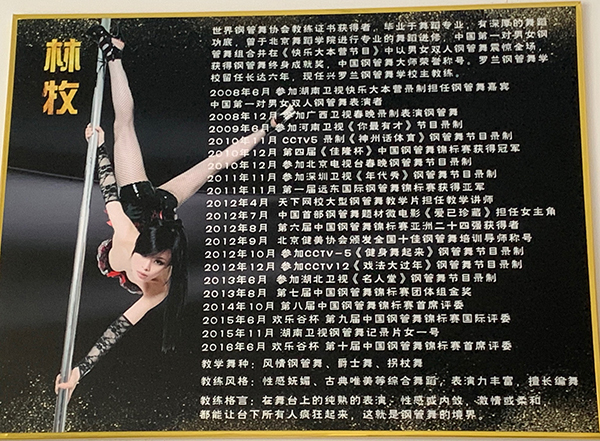 林牧
世界钢管舞协会教练证书获得者，毕业于舞蹈专业，有深厚的舞蹈
功底，曾于北京舞蹈学院进行专业的舞蹈进修，中国第一对男女钢
管舞组合并在《快乐大本营节目》中以男女双人钢管舞震惊全场，
获得钢管舞终身成就奖，中国钢管舞大师荣誉称号。罗兰钢管舞学
校留任长达六年，现任兴罗兰钢管舞学校主教练。
2008年6月 参加湖南卫视快乐大本营录制担任钢管舞嘉宾
中国第一对男女双人钢管舞表演者
2008年12月 参加广西卫视春晚录制表演钢管舞
2009年6月 参加河南卫视《你最有才》节目录制
2010年11月 CCTV5 录制《神州话体育》钢管舞节目录制
2010年12月 第四届《佳隆杯》中国钢管舞锦标赛获得冠军
2010年12月 参加北京电视台春晚钢管舞节目录制
2011年11月 参加深圳卫视《年代秀》钢管舞节目录制
2011年11月 第一届远东国际钢管舞锦标赛获得亚军
2012年4月 天下网校大型钢管舞教学片担任教学讲师
2012年7月 中国首部钢管舞题材微电影《爱已珍藏》担任女主角
2012年8月 第六届中国钢管舞锦标赛亚洲二十四强获得者
2012年9月 北京健美协会颁发全国十佳钢管舞培训导师称号
2012年10月 参加CCTV-5《健身舞起来》钢管舞节目录制
2012年12月 参加CCTV12《戏法大过年》钢管舞节目录制
2013年6月 参加湖北卫视《名人堂》钢管舞节目录制
2013年8月 第七届中国钢管舞锦标赛团体组金奖
2014年10月 第八届中国钢管舞锦标赛首席评委
2015年6月 欢乐谷杯 第九届中国钢管舞锦标赛国际评委
2015年11月 湖南卫视钢管舞记录片女一号
2016年6月 欢乐谷杯 第十届中国钢管舞锦标赛首席评委
教学舞种：风情钢管舞、爵士舞、拐杖舞
教练风格：性感妩媚、古典唯美等综合舞蹈，表演力丰富，擅长编舞
教练格言：在舞台上的纯熟的表演，性感或内敛，激情或柔和，
都能让台下所有人疯狂起来，这就是钢管舞的境界。